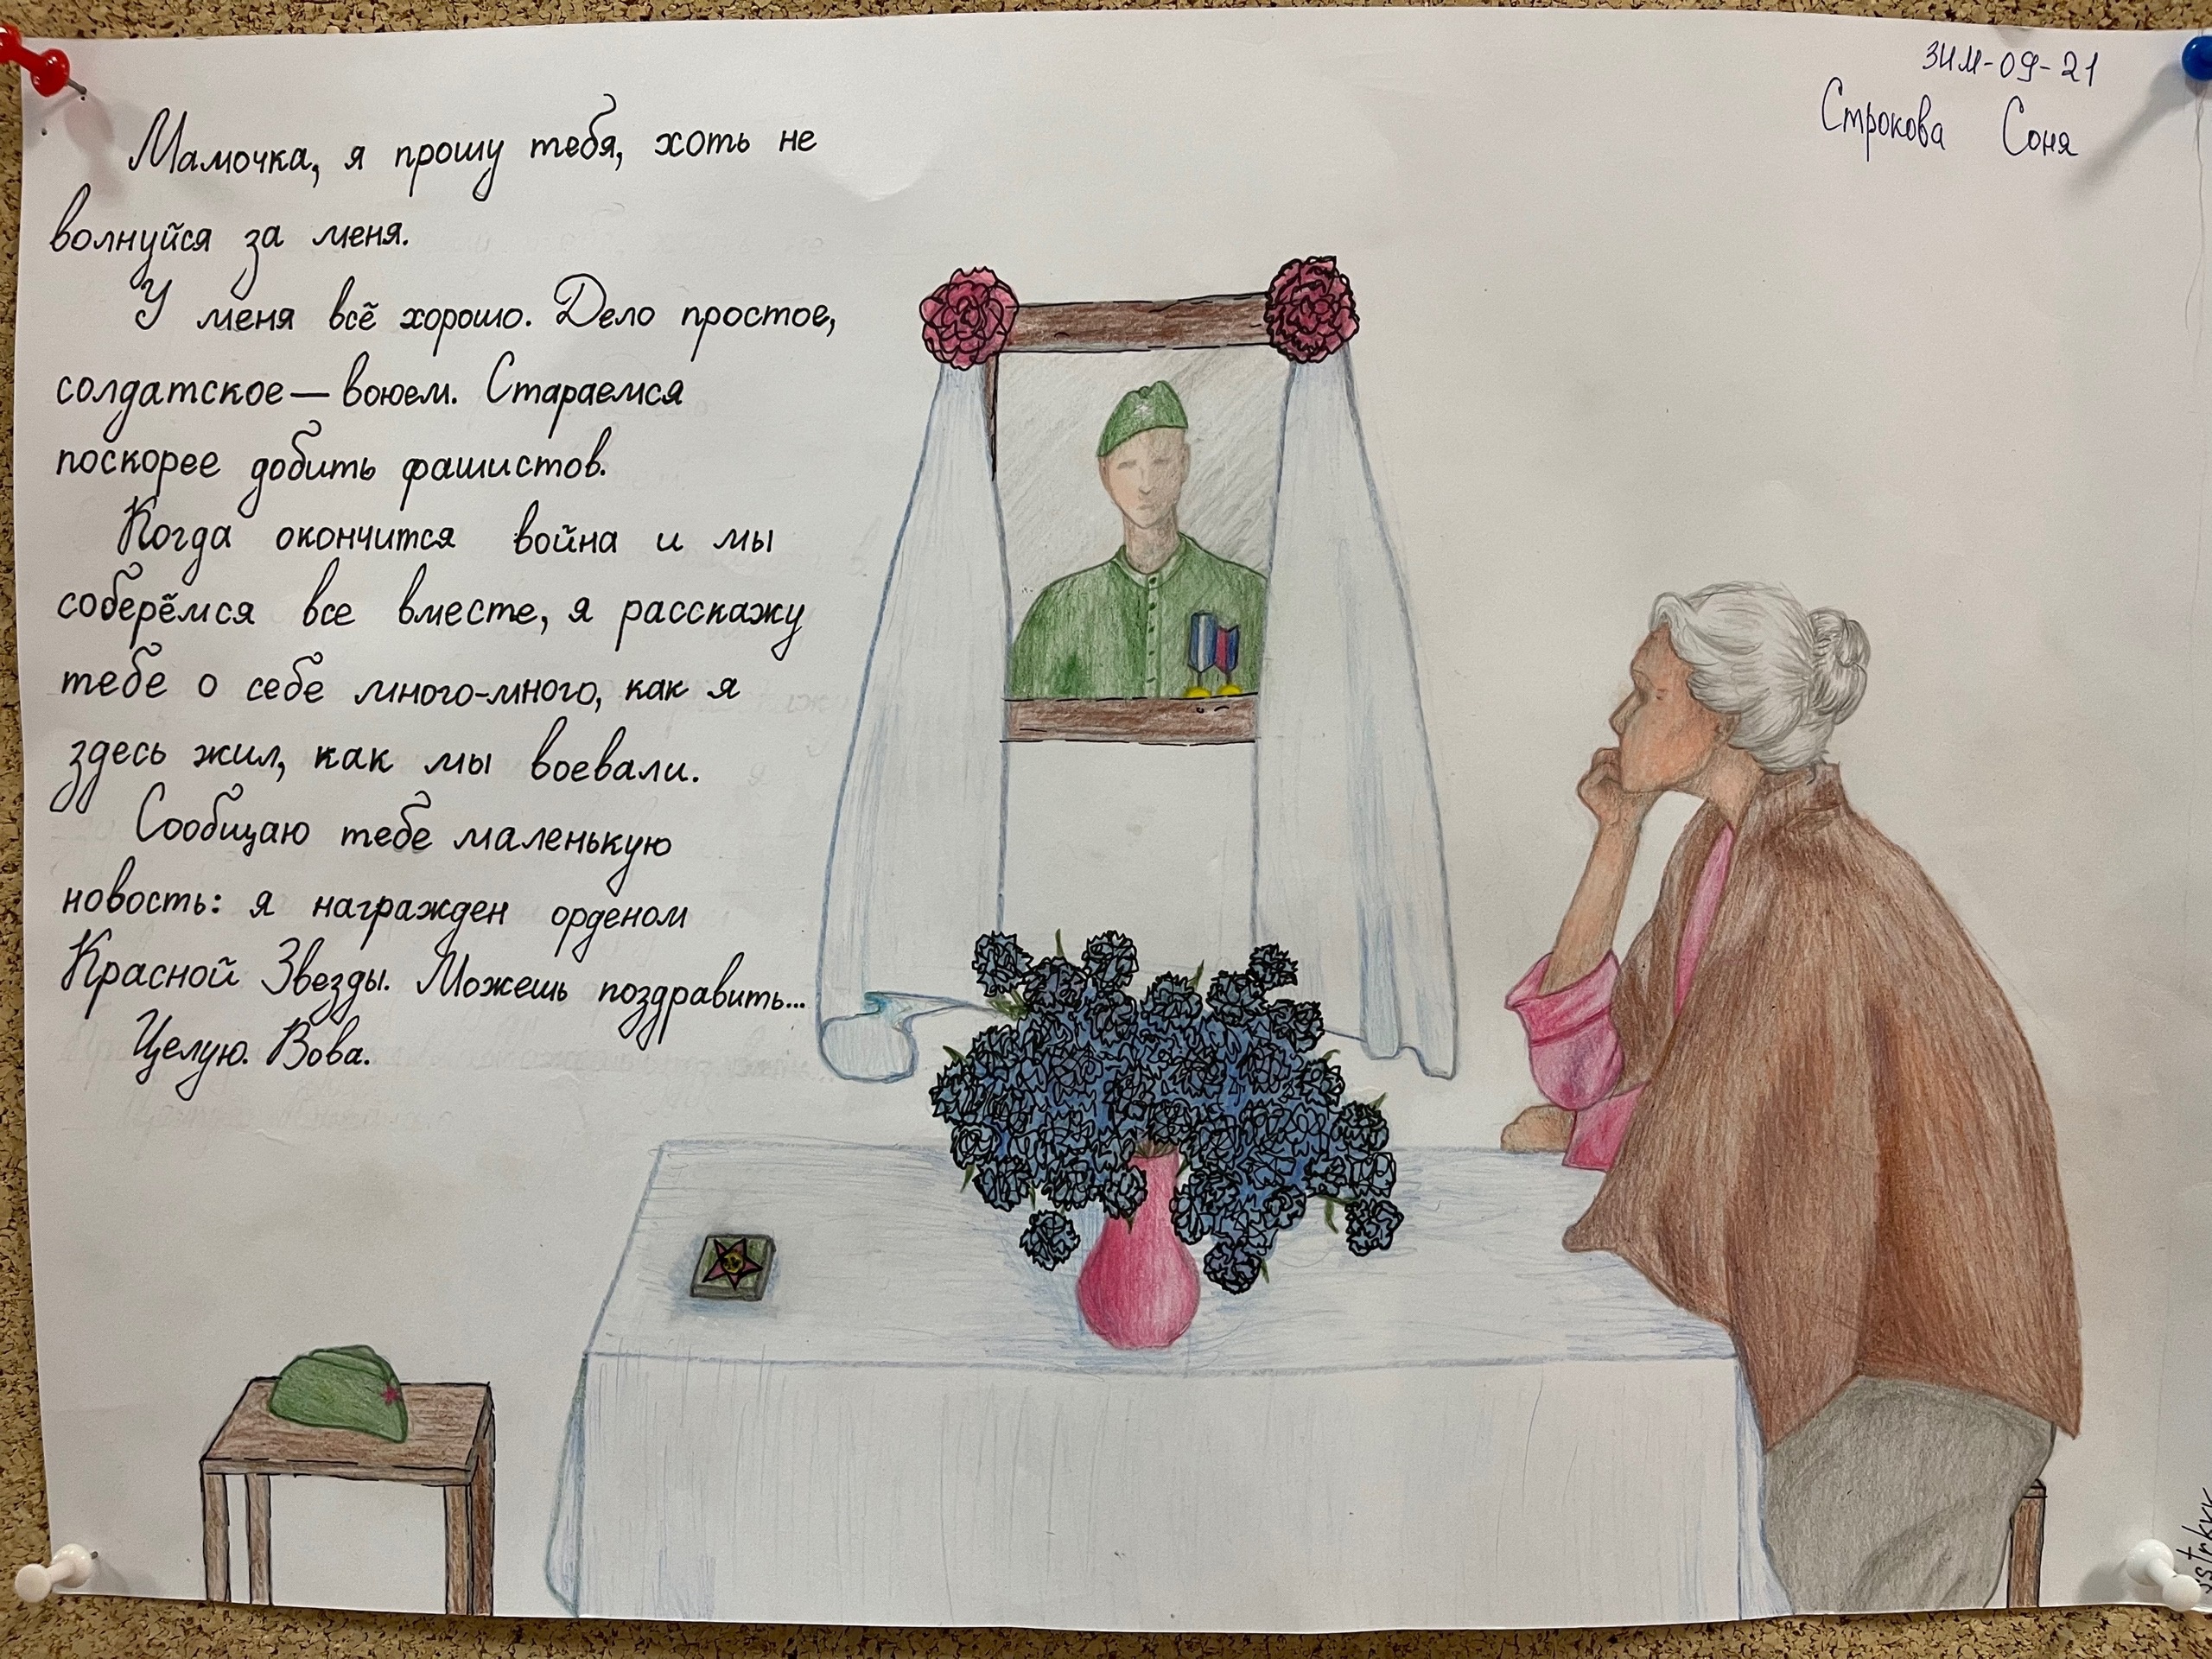 ЗИМ-09-21
Строкова Соня
Мамочка, я прошу тебя, хоть не
волнуйся за меня.
У меня всё хорошо. Дело простое,
солдатское — воюем. Стараемся
поскорее добить фашистов.
Когда окончится война и мы
соберёмся все вместе, я расскажу
тебе о себе много-много, как я
здесь жил, как мы воевали.
Сообщаю тебе маленькую
новость: я награжден орденом
Красной Звезды. Можешь поздравить...
Целую. Вова.